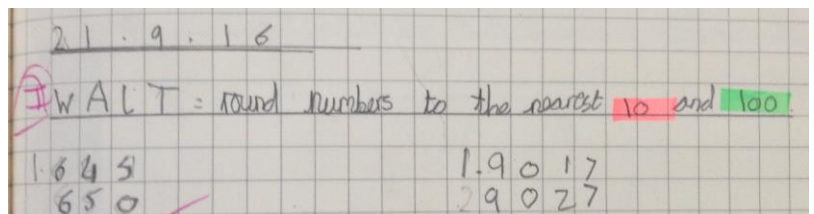 21.9.16
I WALT: round numbers to the nearest 10 and 100.
1. 645 1. 9017
650 2 9027